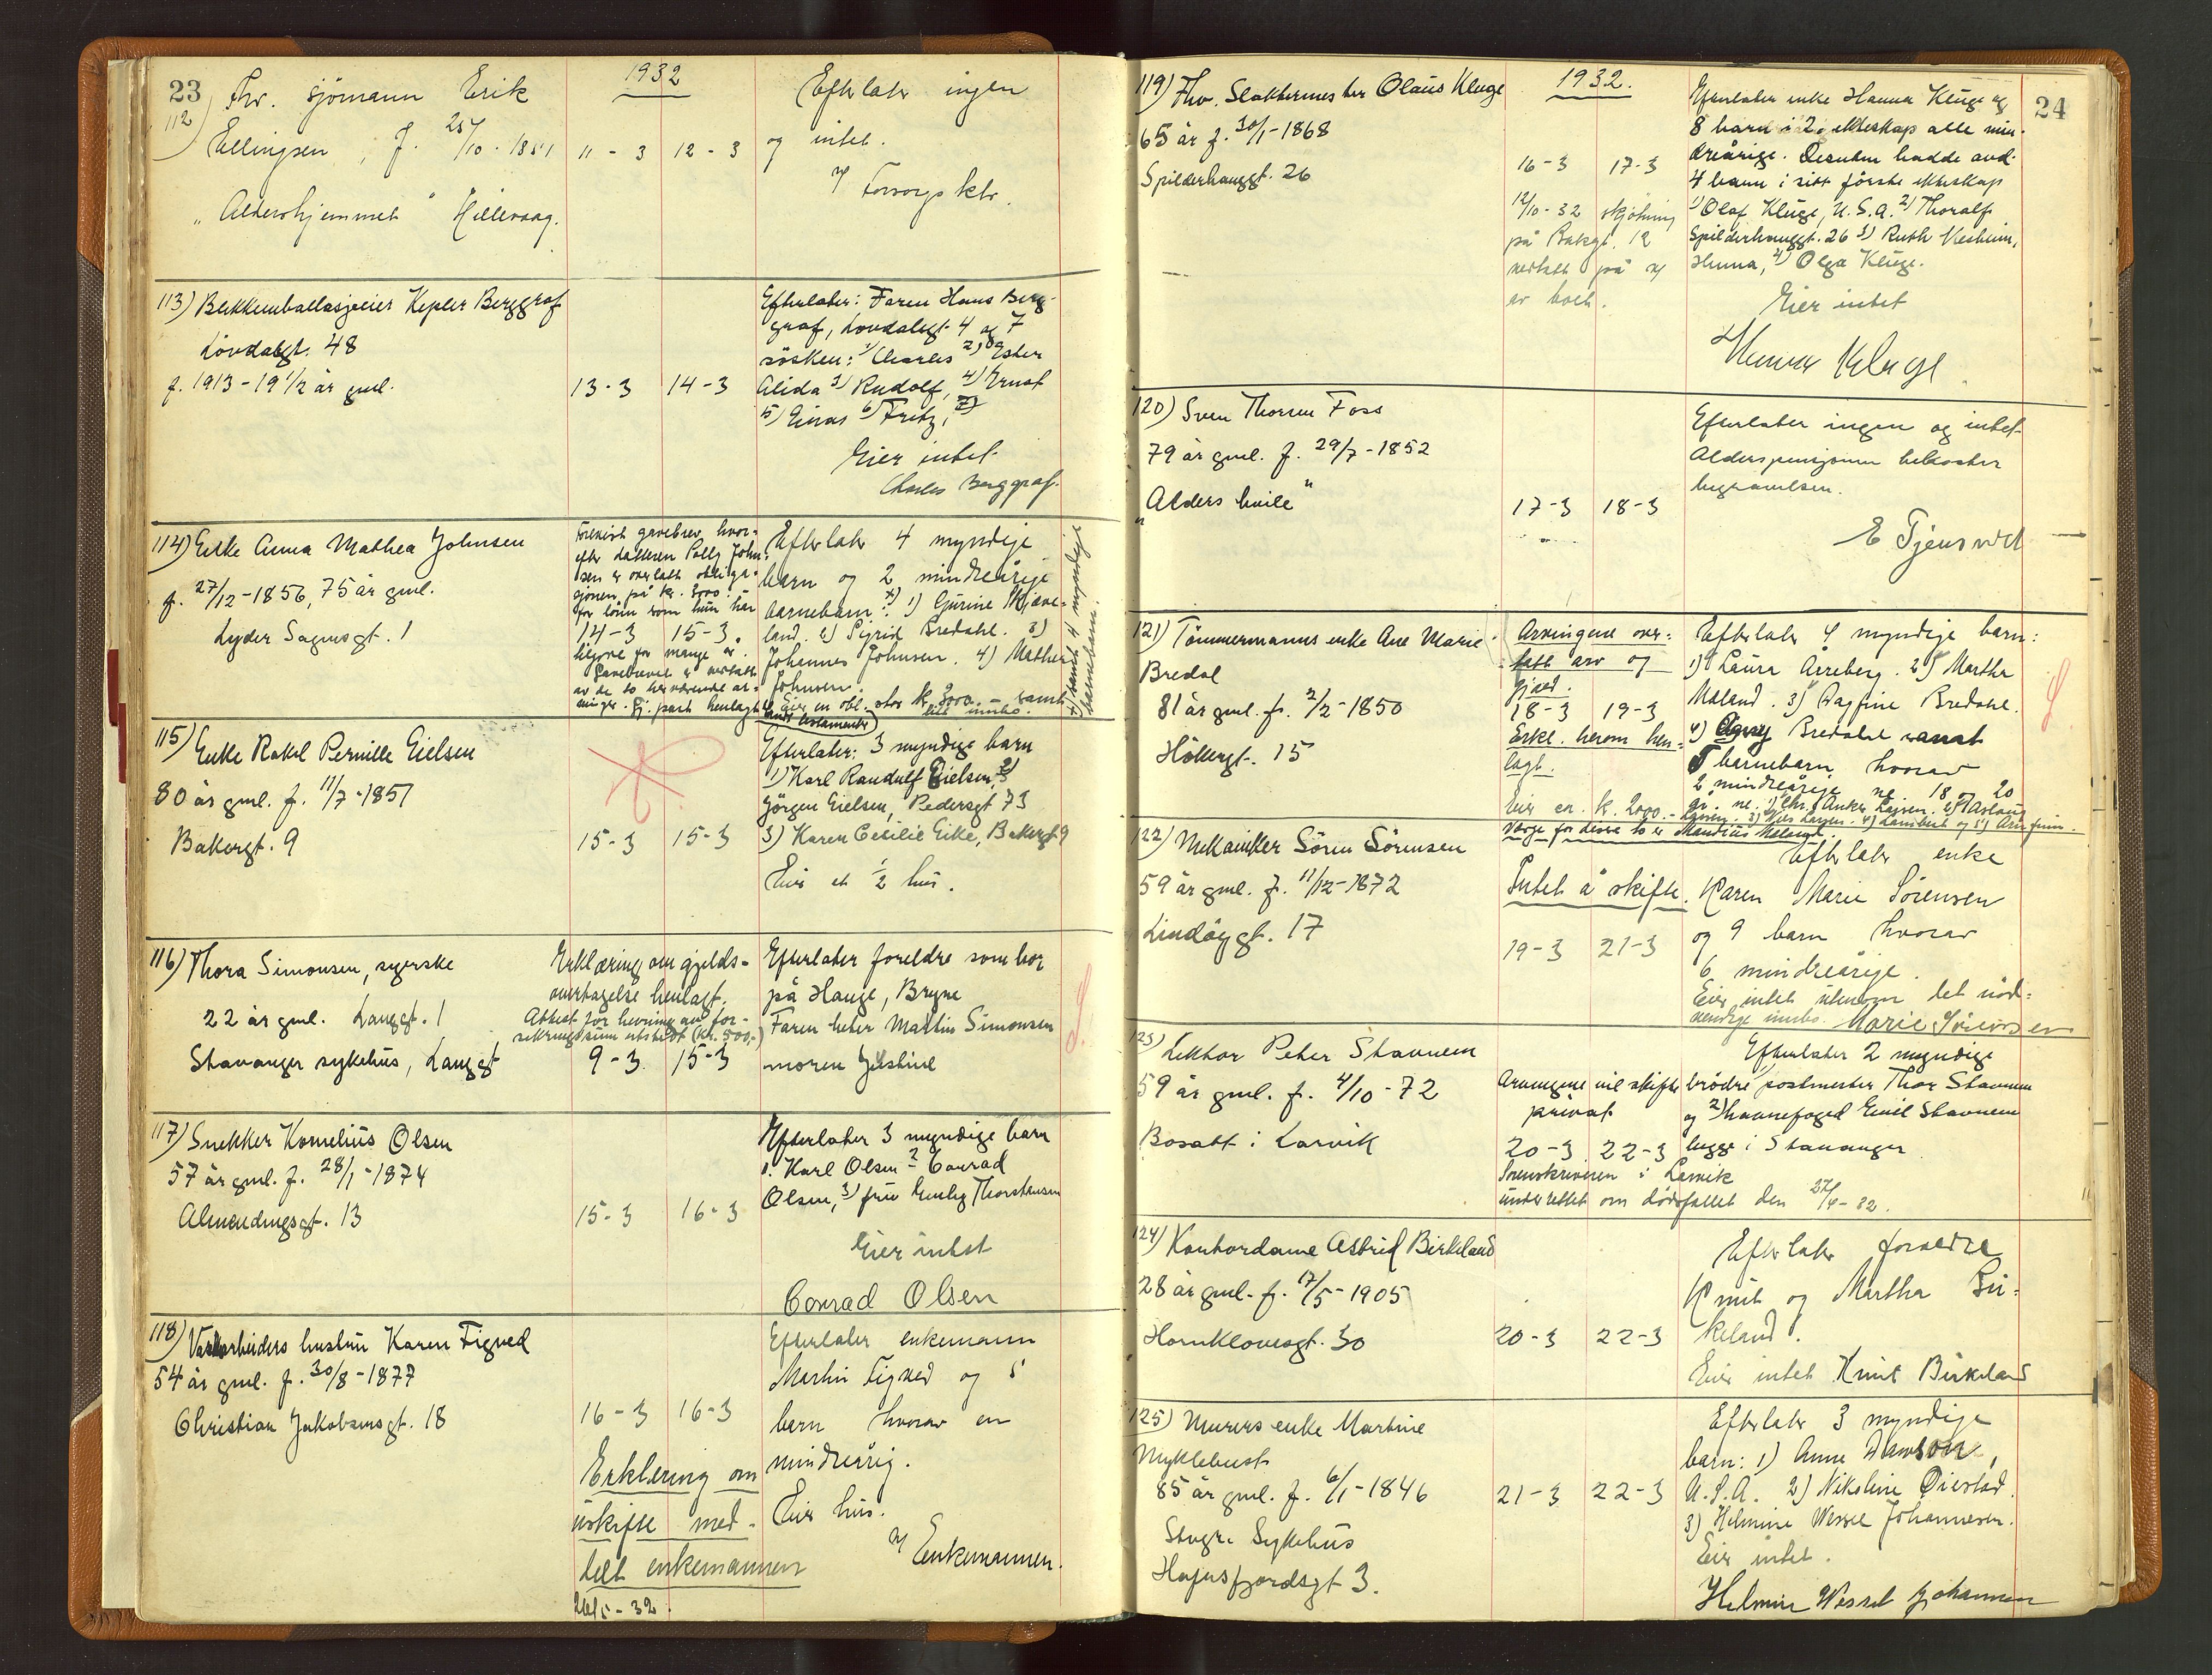 23
1932
112) Fhv. sjömann Erik
Ellingsen, f. 25/10-1851
"Aldershjemmet" Hillevaag.
11-3 12-3
Efterlater ingen
og intet.
Forsorgsktr.
113) Blikkemballasjeeier Kepler Berggraf
Lövdalsgt. 48
f. 1913 - 19 1/2 år gml.
13-3 14-3
Efterlater: Faren Hans Berg-
graf, Lövdalsgt. 4 og 7
sösken: 1) Charles 2) Ester
Alida 3) Rudolf, 4) Ernst
5) Einar 6) Fritz, 7)
Eier intet
Charles Berggraf.
114) Enke Anna Mathea Johnsen
f. 27/12-1856, 75 år gml.
Lyder Sagensgt. 1
gavebrev hvor-
efter datteren Polly John-
sen er overlatt obliga-
sjonen på kr. 3000.-
for lönn som hun har
14-3 15-3.
tilgode for mange år.
Gavebrevet er vedtatt
av de to nærværende ar-
vinger. Gj. part henlagt
Efterlater 4 myndige
barn og 2 mindreårige
barnebarn x). 1) Gurine Skjæve-
land. 2) Sigrid Bredahl. 3)
Johannes Johnsen. 4) Mathea
Johnsen.
Eier en obl. stor kr. 3000.- samt
litt innbo.
x) samt 4 myndige
barnebarn.
115) Enke Rakel Pernille Eielsen
80 år gml. f. 11/7-1851
Bakergt. 9
15-3 15-3
Efterlater: 3 myndige barn
1) Karl Randulf Eielsen, 2)
Jörgen Eielsen, Pedersgt 73
3) Karen Cecilie Eike, Bakergt 9
Eier et 1/2 hus.
116) Thora Simonsen, syerske
22 år gml. Langgt. 1
Stavanger sykehus, Langgt
Erklæring om gjelds-
overtagelse henlagt.
Attest for hevning av for-
sikringssum utstedt (kr. 500,-)
9-3. 15-3
Efterlater foreldre som bor
på Hauge, Bryne
Faren heter Martin Simonsen
moren Jelstine
117) Snekker Kornelius Olsen
57 år gml. f. 28/1-1874
Almendingsgt. 13
15-3 16-3
Efterlater 3 myndige barn
1. Karl Olsen 2 Conrad
Olsen, 3) fru Emley Thorstensen
Eier intet
Conrad Olsen
118) Vaskarbeiders hustru Karen Figved
54 år gml. f. 30/8-1877
Christian Jakobsensgt. 18
16-3 16-3
Erklæring om
uskifte med-
delt enkemannen
26/5-32.
Efterlater enkemann
Martin Figved og 5
barn hvorav en
mindreårig.
Eier hus.
Enkemannen.
24
1932.
119) Fhv. Slaktermester Olaus Kluge
65 år f. 30/1-1868
Spilderhauggt. 26
16-3 17-3
12/10-32 skjötning
på Bakgt. 12
nektet på
av boet.
Efterlater enke Hanna Kluge og
8 barn i 2. ekteskap alle min-
dreårige. Desuten hadde avd.
4 barn i sitt förste ekteskap
1) Olaf Kluge, U.S.A. 2) Thoralf
Spilderhauggt. 26 3) Ruth Vesheim,
Hinna, 4) Olga Kluge.
Eier intet
Hanna Kluge
120) Sven Thorsen Foss
79 år gml. f. 29/7-1852
"Alders hvile"
17-3 18-3
Efterlater ingen og intet
Alderspensjonen bekoster
begravelsen.
E Tjensvold
121) Tömmermanns enke Ane Marie
Bredal
81 år gml. f. 2/2-1850
Höllergt. 15
Arvingene over-
tatt arv og
gjeld.
18-3 19-3
Erkl. herom hen-
lagt.
Eier en. k. 2000.-
Efterlater 4 myndige barn:
1) Laura Arreberg. 2) Martha
Meland. 3) Dagfine Bredahl.
4) Bredahl samt
5 barnebarn hvorav
2 mindreårige ne. 18 og 20
år. ne. 1) Chr. Anker Larsen. 2) Aslaug
Larsen. 3) Nils Larsen. 4) Lambert og 5) Arnfinn.
Verge for disse to er Mandius Meland.
122) Mekaniker Sören Sörensen
59 år gml. f. 11/12-1872
Lindöygt. 17
Intet å skifte.
19-3 21-3
Efterlater enke
Karen Marie Sörensen
og 9 barn hvorav
6 mindreårige.
Eier intet utenom det nöd-
vendige innbo. Marie Sörensen
123) Lektor Peter Stavnem
59 år gml. f. 4/10-72
Bosatt i Larvik
Arvingene vil skifte
privat
20-3. 22-3
Sorenskriveren i Larvik
underrettet om dödsfallet den 27/4-32.
Efterlater 2 myndige
brödre postmester Thor Stavnem
og 2) havnefoged Emil Stavnem
begge i Stavanger
124) Kontordame Astrid Birkeland
28 år gml. f. 17/5-1905
Hornklovesgt. 30
20-3 22-3
Efterlater foreldre
Knut og Martha Bir-
keland.
Eier intet Knut Birkeland
125) Murers enke Martine
Myklebust
85 år gml. f. 6/1-1846
Stvgr. Sykehus
Hafrsfjordsgt 3.
21-3 22-3
Efterlater 3 myndige
barn: 1) Anne Dawson,
U.S.A. 2) Nikoline Öiestad.
3) Helmine Wessel Johannesen.
Eier intet.
Helmine Wessel Johannesen